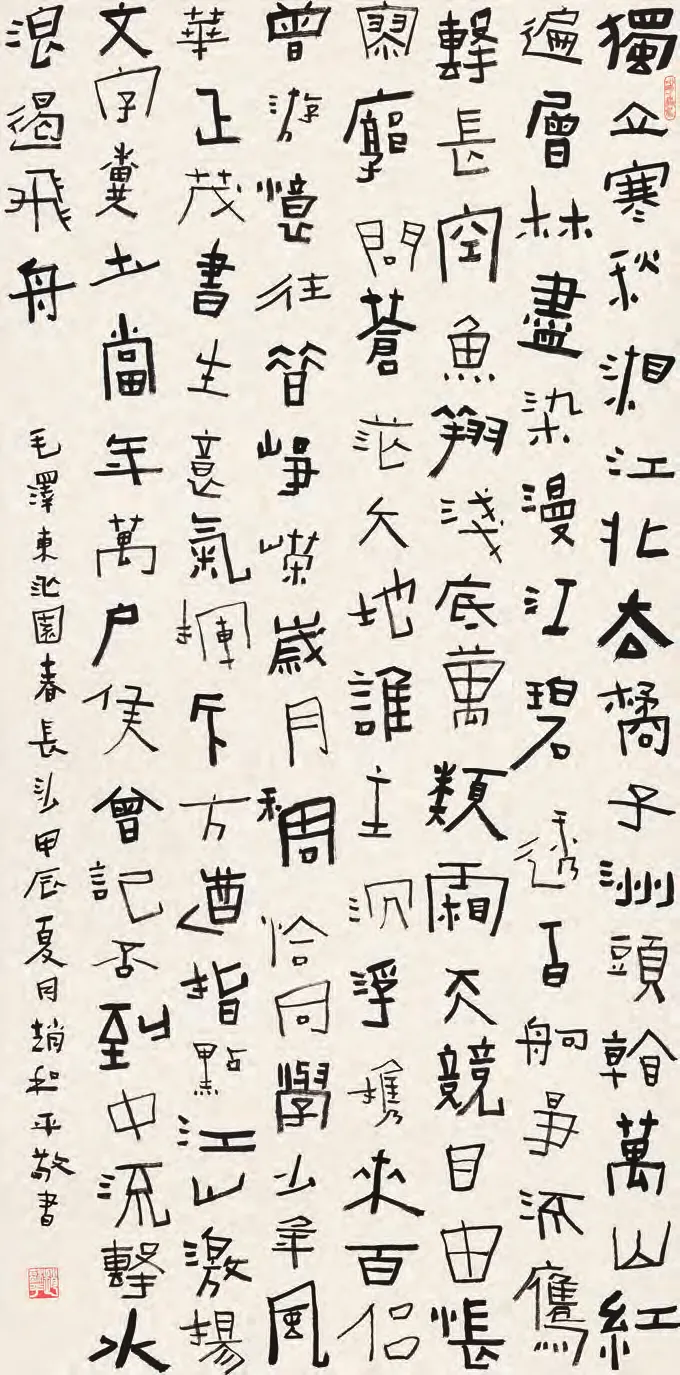 獨立寒秋湘江北去橘子洲頭看萬山紅
遍層林盡染漫江碧透百舸爭流鷹
擊長空魚翔淺底萬類霜天競自由悵
寥廓問蒼茫大地誰主沉浮攜來百侶
曾游憶往昔崢嶸歲月稠恰同學少年風
華正茂書生意氣揮斥方遒指點江山激揚
文字糞土當年萬戶侯曾記否到中流擊水
浪遏飛舟
毛澤東沁園春長沙甲辰夏月趙和平敬書